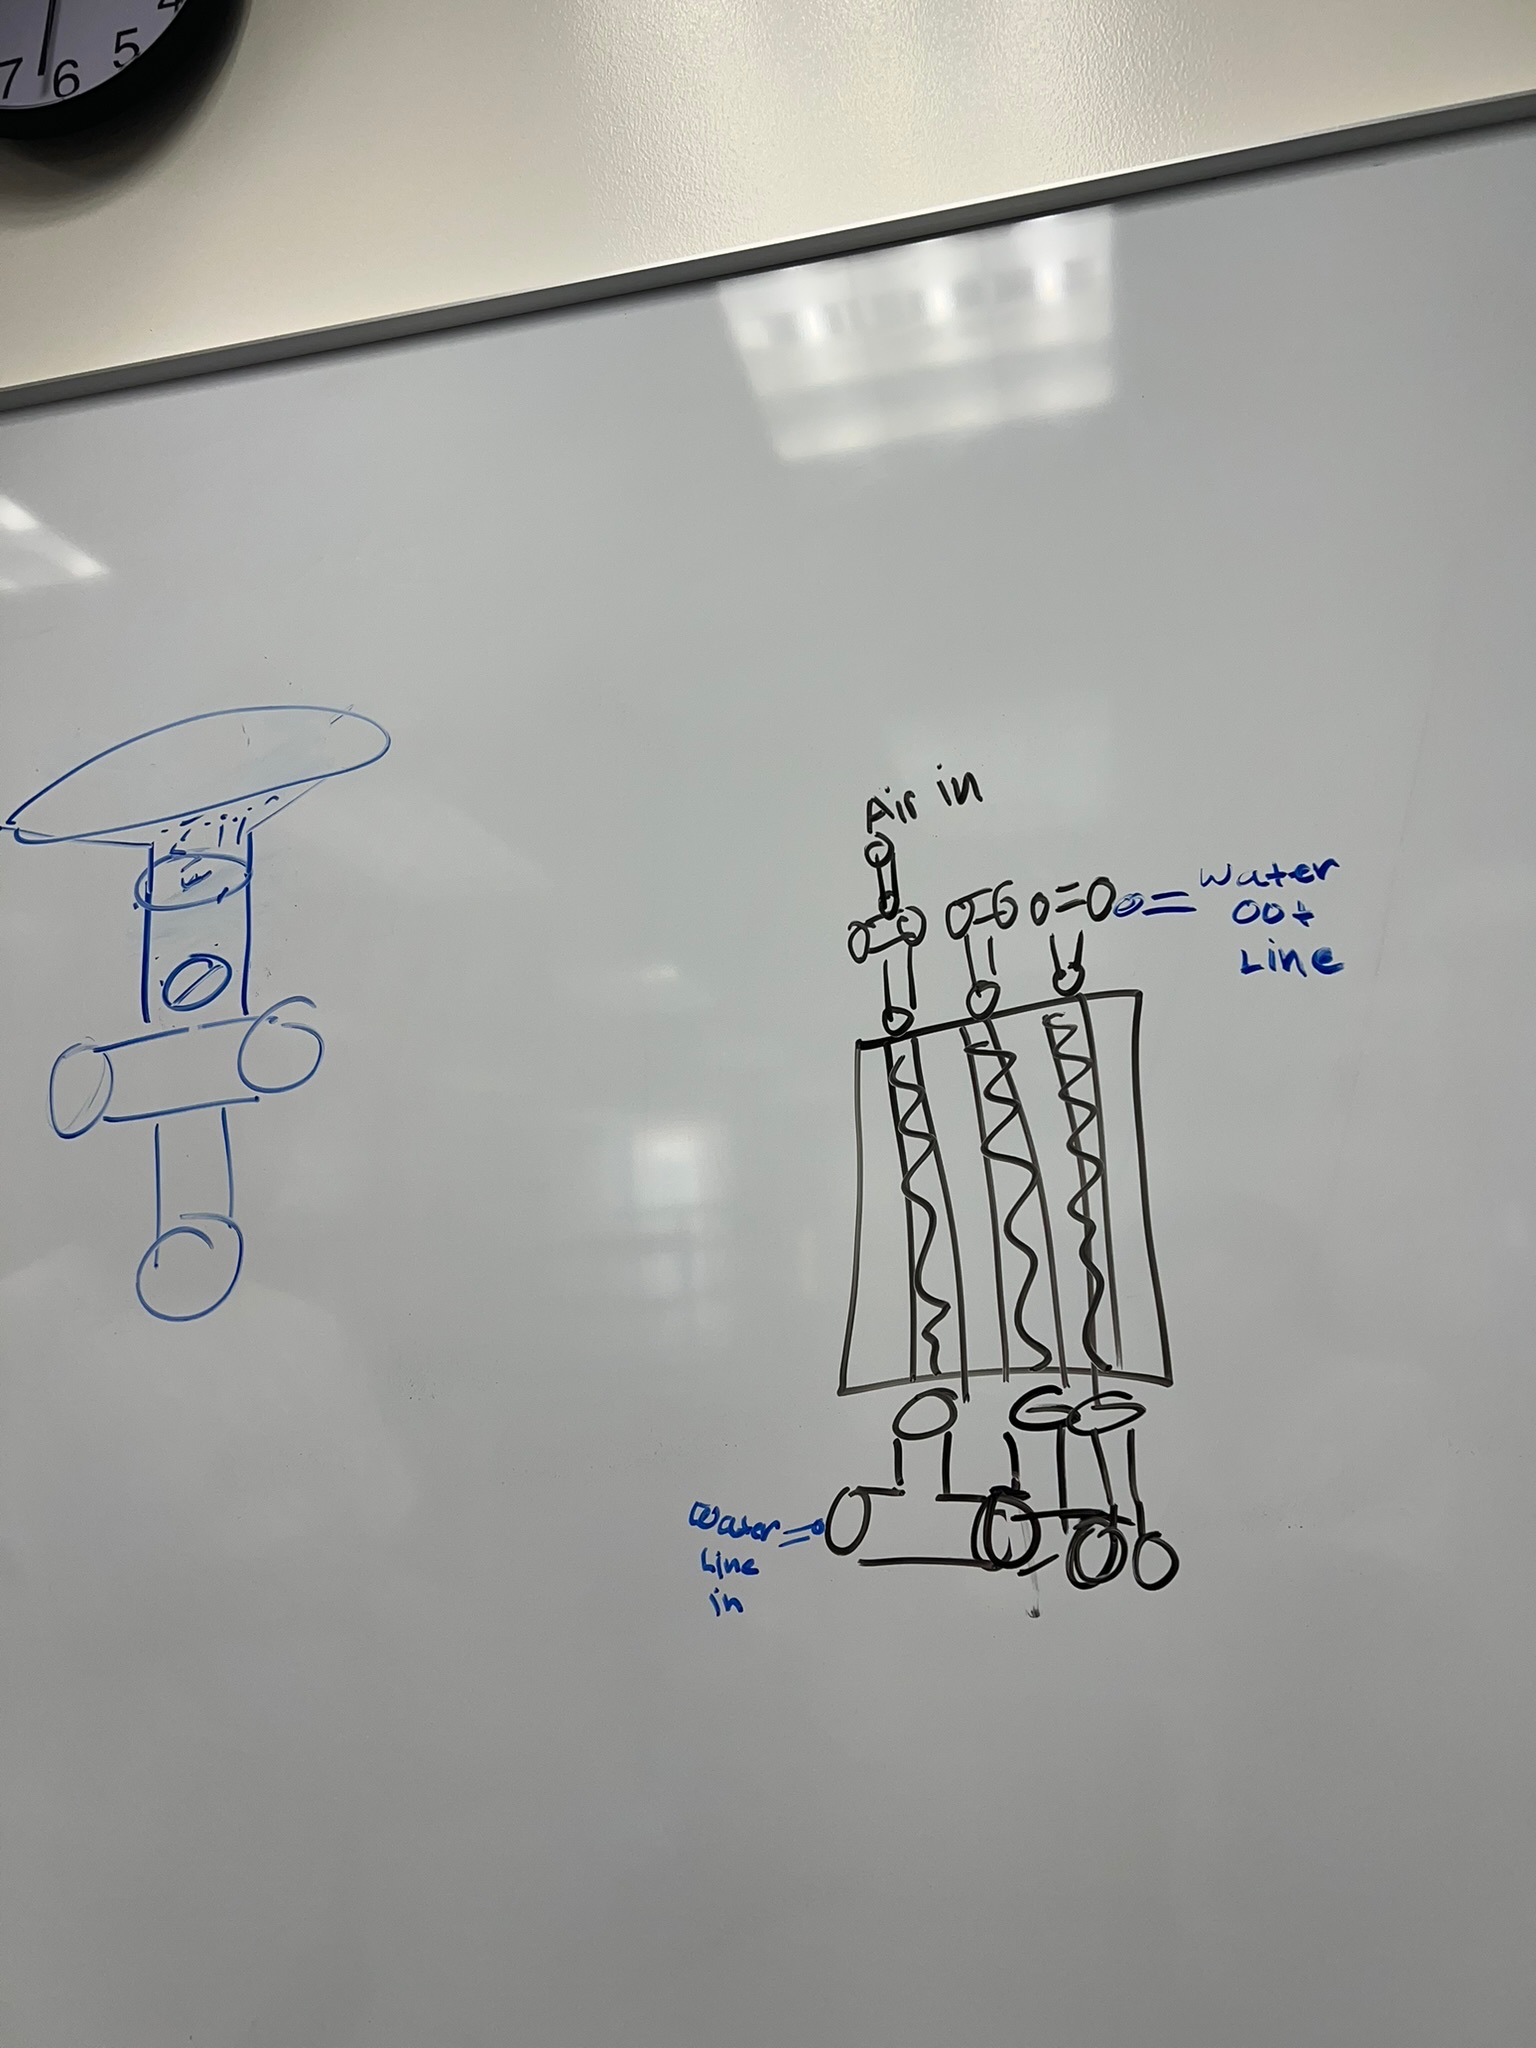 4
5
6
7
Air in
Water
Oot
Line
Water
Line
in